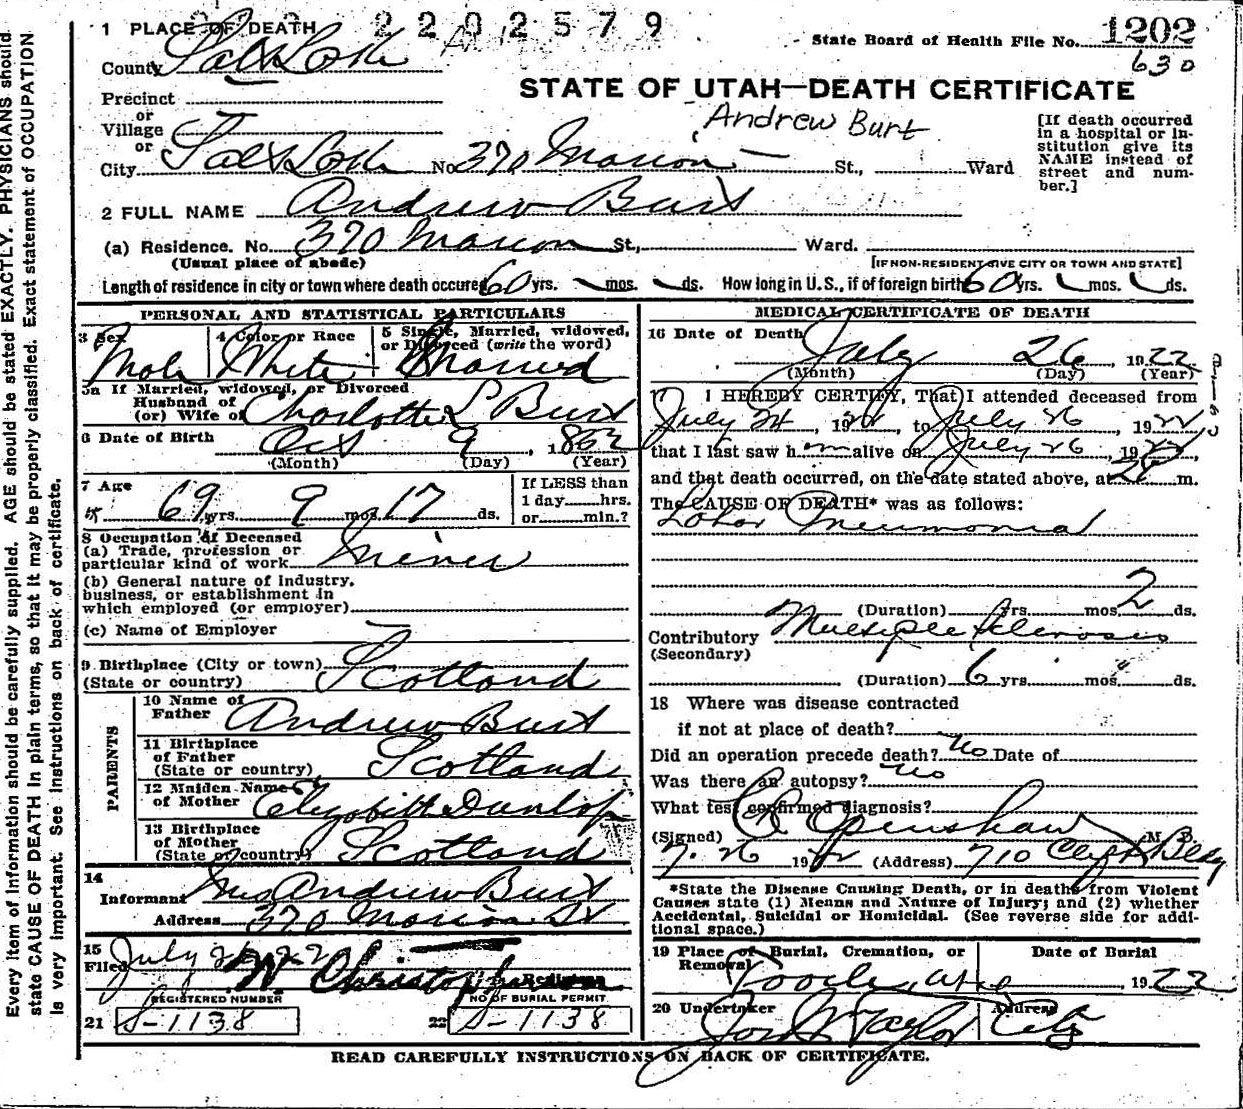 2202579
1 PLACE OF DEATH
State Board of Health File No. 1202
630
County Salt Lake
STATE OF UTAH—DEATH CERTIFICATE
Precinct
or
Village
or
Andrew Burt
[If death occurred in a hospital or institution give its NAME instead of street and number.]
City Salt Lake No 370 Marion St., Ward
2 FULL NAME Andrew Burt
(a) Residence. No. 370 Marion St., Ward.
(Usual place of abode) [IF NON-RESIDENT GIVE CITY OR TOWN AND STATE]
Length of residence in city or town where death occured 60 yrs. mos. ds. How long in U.S., if of foreign birth 60 yrs. mos. ds.
PERSONAL AND STATISTICAL PARTICULARS
3 Sex Male
4 Color or Race White
5 Single, Married, widowed, or Divorced (write the word) Married
5a If Married, widowed, or Divorced
Husband of
(or) Wife of Charlotte L Burt
6 Date of Birth Oct 9, 1852
(Month) (Day) (Year)
7 Age 69 yrs. 9 mos. 17 ds.
If LESS than
1 day hrs.
or min.?
8 Occupation of Deceased
(a) Trade, profession or
particular kind of work Miner
(b) General nature of industry,
business, or establishment in
which employed (or employer)
(c) Name of Employer
9 Birthplace (City or town)
(State or country) Scotland
PARENTS
10 Name of Father Andrew Burt
11 Birthplace of Father
(State or country) Scotland
12 Maiden Name of Mother Elizabeth Dunlop
13 Birthplace of Mother
(State or country) Scotland
14
Informant Mrs Andrew Burt
Address 370 Marion St
15
Filed July
Registrar
REGISTERED NUMBER
21 S-1138
NO OF BURIAL PERMIT
22 S-1138
MEDICAL CERTIFICATE OF DEATH
16 Date of Death July 26 1922
(Month) (Day) (Year)
17 I HEREBY CERTIFY, That I attended deceased from
July 24, 1922, to July 26 1922
that I last saw him alive on July 26, 1922,
and that death occurred, on the date stated above, at m.
The CAUSE OF DEATH* was as follows:
Lobar Pneumonia
(Duration) yrs. mos. 2 ds.
Contributory Multiple Sclerosis
(Secondary)
(Duration) 6 yrs. mos. ds.
18 Where was disease contracted
if not at place of death?
Did an operation precede death? No Date of
Was there an autopsy? No
What test confirmed diagnosis?
(Signed) Openshaw M. D.
7. 26 1922 (Address) 710 Clift Bldg
*State the Disease Causing Death, or in deaths from Violent
Causes state (1) Means and Nature of Injury; and (2) whether
Accidental, Suicidal or Homicidal. (See reverse side for addi-
tional space.)
19 Place of Burial, Cremation, or Removal
Date of Burial
1922
20 Undertaker Jos Wm Taylor
Address City
READ CAREFULLY INSTRUCTIONS ON BACK OF CERTIFICATE.
Every item of information should be carefully supplied. AGE should be stated EXACTLY. PHYSICIANS should
state CAUSE OF DEATH in plain terms, so that it may be properly classified. Exact statement of OCCUPATION
is very important. See instructions on back of certificate.